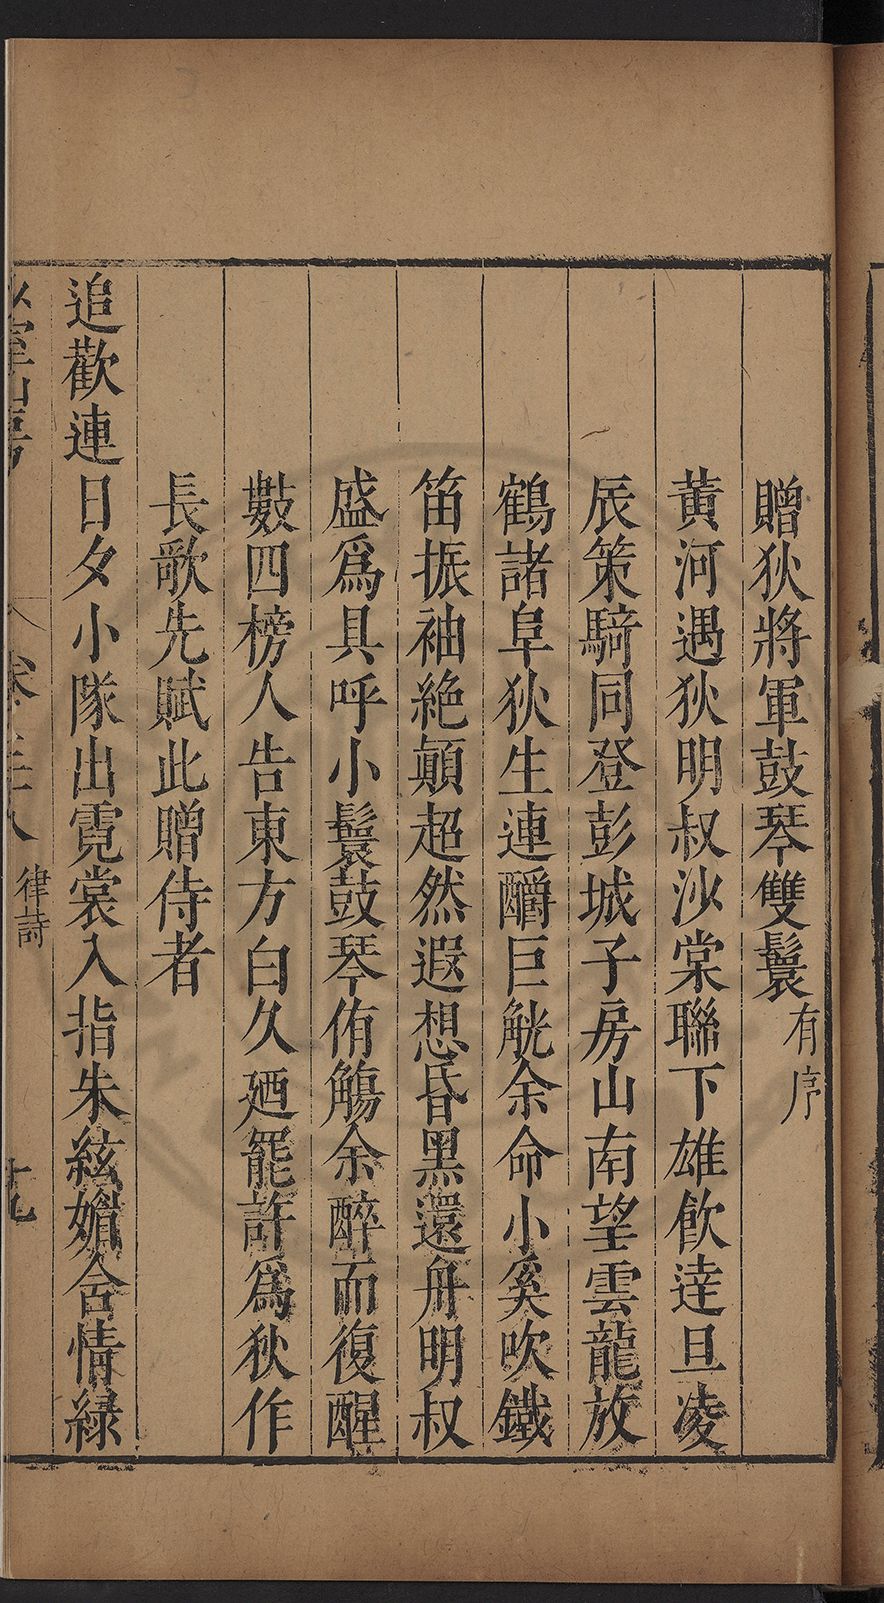 贈狄將軍鼓琴雙鬟有序
黃河遇狄明叔沙棠聯下雄飲達旦凌
辰策騎同登彭城子房山南望雲龍放
鶴諸阜狄生連釂巨觥余命小奚吹鐵
笛振袖絶顛超然遐想昏黑還舟明叔
盛爲具呼小鬟鼓琴侑觴余醉而復醒
數四榜人告東方白久廼罷許爲狄作
長歌先賦此贈侍者
追歡連日夕小隊出霓裳入指朱絃媚含情緑
律詩
十九